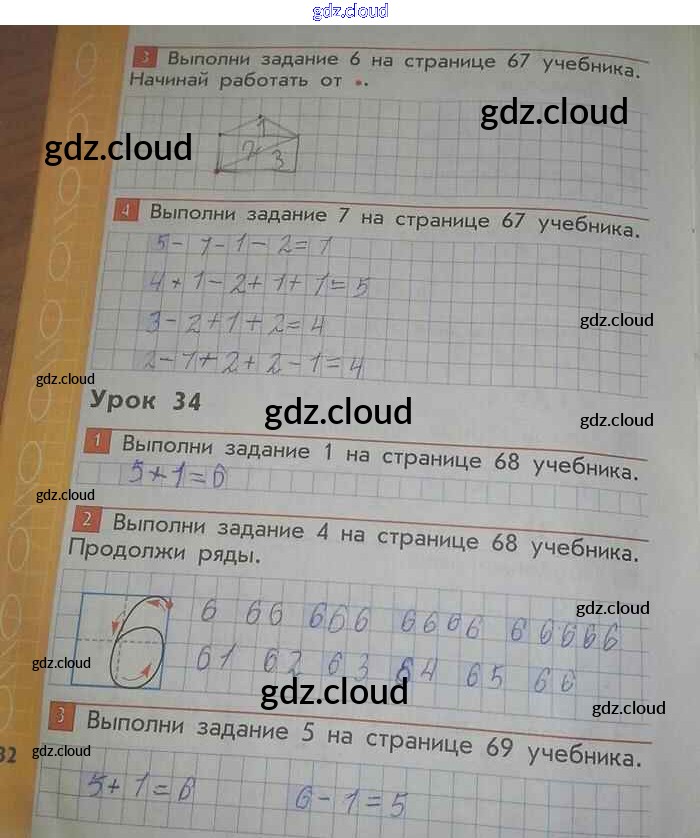 gdz.cloud
3 Выполни задание 6 на странице 67 учебника.
Начинай работать от •.
gdz.cloud
gdz.cloud
1
2
3
4 Выполни задание 7 на странице 67 учебника.
5-1-1-2=1
4+1-2+1+1=5
3-2+1+2=4
gdz.cloud
2-1+2+2-1=4
gdz.cloud
Урок 34
gdz.cloud
gdz.cloud
1 Выполни задание 1 на странице 68 учебника.
5+1=6
gdz.cloud
2 Выполни задание 4 на странице 68 учебника.
Продолжи ряды.
6 66 666 6666 66666
gdz.cloud
61 62 63 64 65 66
gdz.cloud
gdz.cloud
gdz.cloud
3 Выполни задание 5 на странице 69 учебника.
32
gdz.cloud
5+1=6 6-1=5